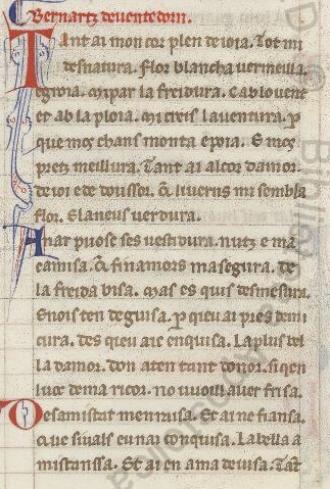 Bernartz deuentedorn.
Tant ai mon cor plen de ioia. Tot mi
desnatura. flor blancha uermeilla.
egroia. mi par la freidura. cab lo uent
et ab la ploia. mi creis lauentura. p
que mos chans monta epoia. E mos
pretz meillura. Tant ai al cor damor.
de ioi e de doussor. qe liuerns mi sembla
flor. E la neus uerdura.
Anar puosc ses uestidura. nutz e ma
camisa. qe finamors masegura. de
la freida bisa. mas es quis desmesura.
Enois ten de guisa. p qeu ai pres de mi
cura. des qeu aic enquisa. La plus bel
la damor. don aten tant donor. si qen
luoc de ma ricor. no uuoill auer frisa.
De samistat menraisa. Et ai ne fiansa.
que siuals eu nai conquisa. La bella a
mistanssa. Et ai en a ma deuisa. Tant